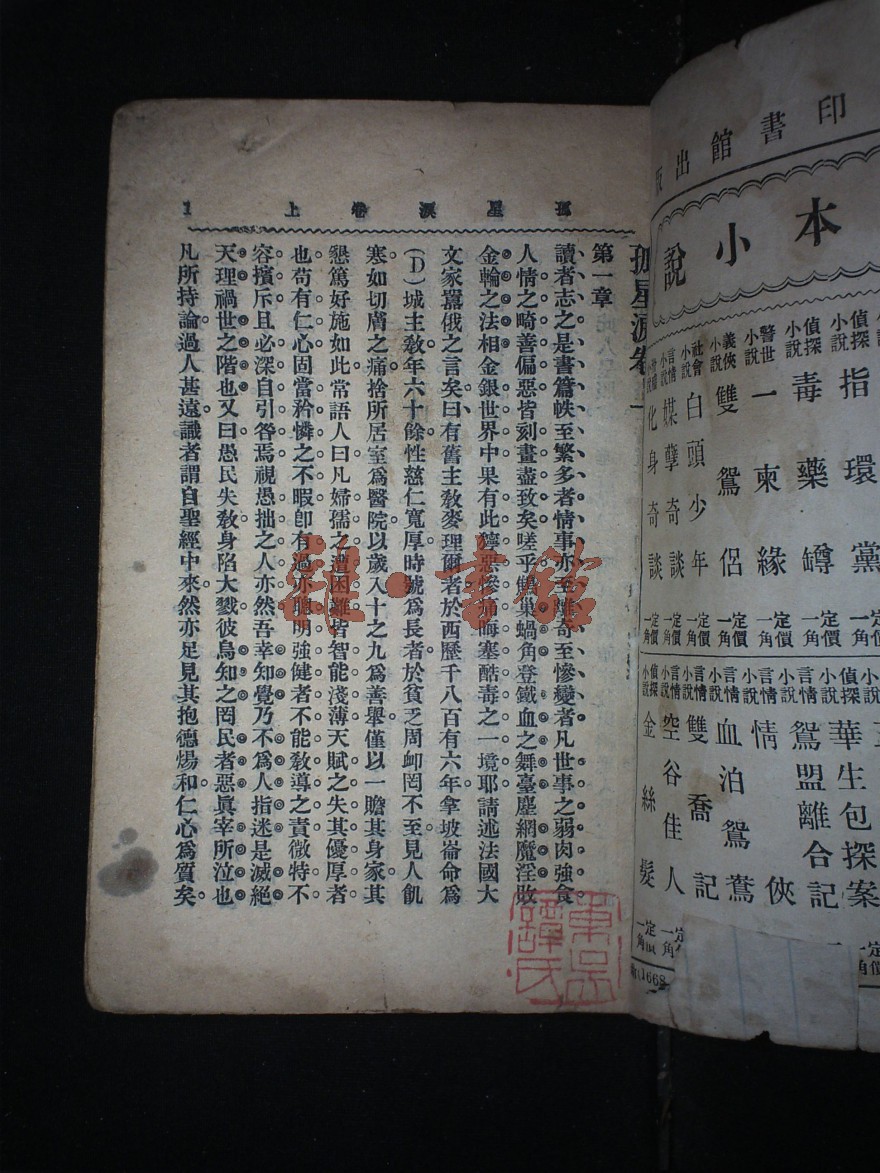 印書館出版
本小說
偵探小說 指環黨 定價一角
偵探小說 毒藥罇 定價一角
警世小說 一柬緣 定價一角
義俠小說 雙鴛侶 定價一角
社會小說 白頭少年 定價一角
言情小說 媒孽奇談 定價一角
化身奇談 定價一角
偵探小說 華生包探案
言情小說 鴛盟離合記
言情小說 情俠
言情小說 血泊鴛鴦
言情小說 雙喬記
言情小說 空谷佳人 定價一角
偵探小說 金絲髮 定價一角
1668
孤星淚卷上 1
孤星淚卷
第一章
讀者志之是書篇帙至繁多者情事亦至離奇至慘變者凡世事之弱肉強食
人情之畸善偏惡皆刻畫盡致矣嗟乎蝸角登鐵血之舞臺塵網魔淫敗
金輪之法相金銀世界中果有此獰惡慘痛晦塞酷毒之一境耶請述法國大
文家囂俄之言矣曰有舊主教麥理爾者於西歷千八百有六年拿坡崙命爲
(D)城主敎年六十餘性慈仁寬厚時號爲長者於貧乏周卹罔不至見人飢
寒如切膚之痛捨所居室爲醫院以歲入十之九爲善舉僅以一贍其身家其
懇篤好施如此常語人曰凡婦孺之遭困難皆智能淺薄天賦之失其優厚者
也苟有仁心固當矜憐之不暇卽有過亦聰明強健者不能敎導之責微特不
容擯斥且必深自引咎焉視愚拙之人亦然吾幸知覺乃不爲人指迷是滅絕
天理禍世之階也又曰愚民失敎身陷大戮彼烏知之罔民者惡眞宰所泣也
凡所持論過人甚遠識者謂自聖經中來然亦足見其抱德煬和仁心爲質矣
雅·書館
東吳譚氏